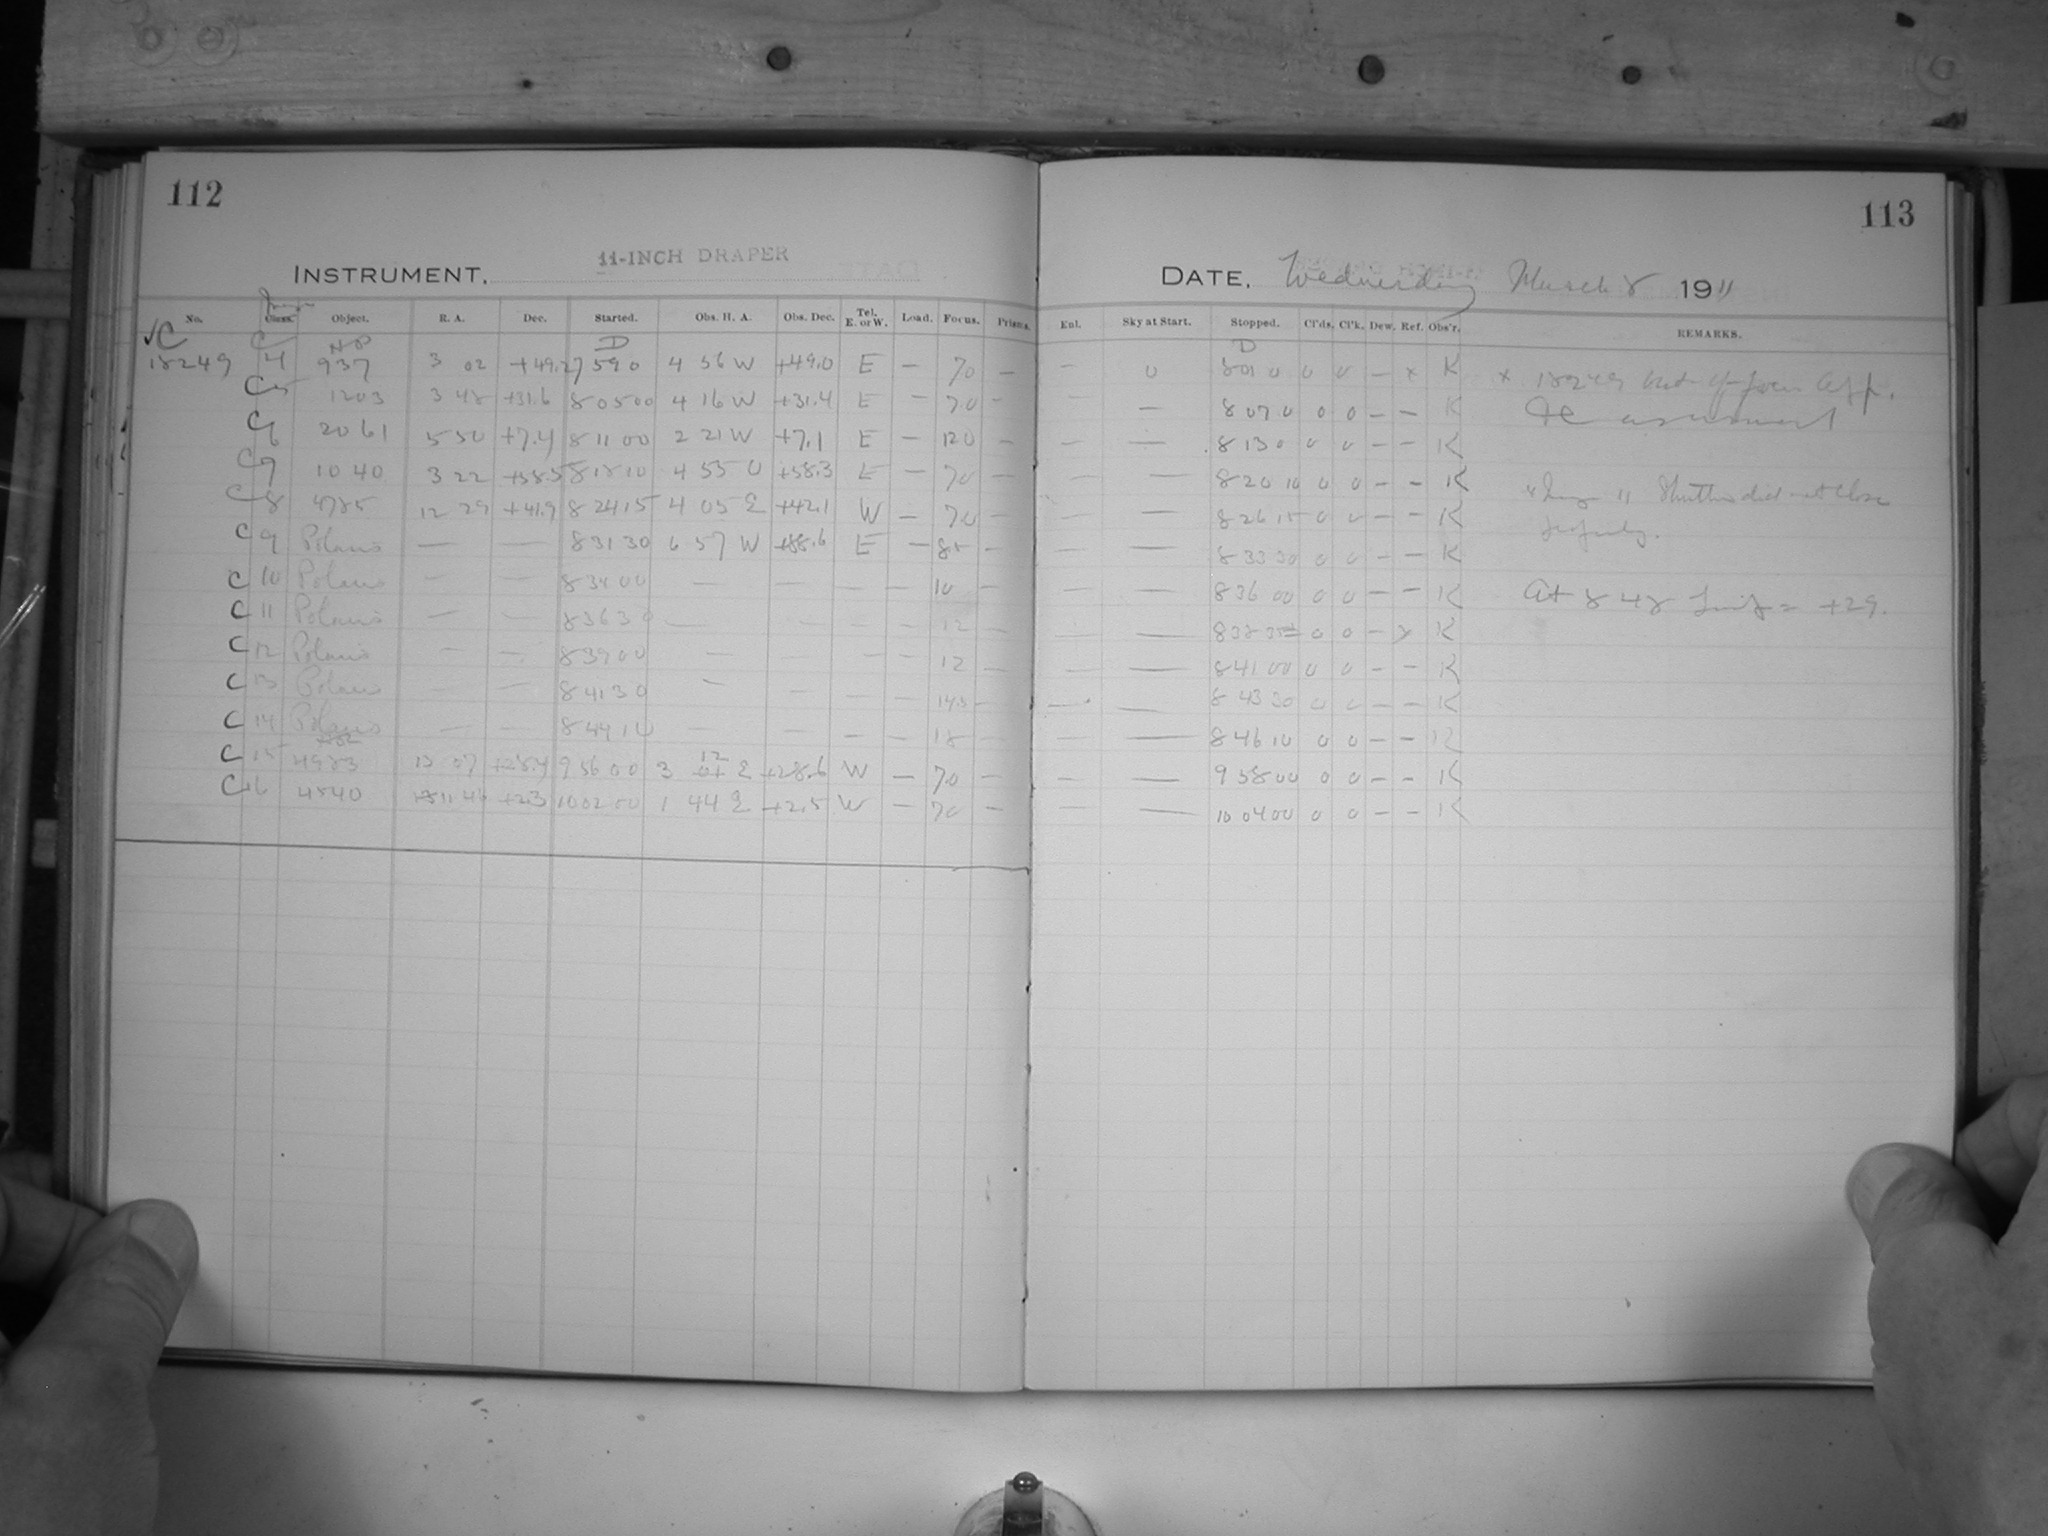 112
INSTRUMENT. 11-INCH DRAPER
No. Class. Object. R. A. Dec. Started. Obs. H. A. Obs. Dec. Tel. E. or W. Load. Focus. Prisms.
C C HP D
18249 4 937 3 02 +49.2 7 59 0 4 56 W +49.0 E — 70 —
C 5 1203 3 48 +31.6 8 05 00 4 16 W +31.4 E — 70 —
C 6 2061 5 50 +7.4 8 11 00 2 21 W +7.1 E — 120 —
C 7 1040 3 22 +58.5 8 18 10 4 55 +58.3 E — 70 —
C 8 4785 12 29 +41.9 8 24 15 4 05 E +42.1 W — 70 —
C 9 Polaris — — 8 31 30 6 57 W +88.6 E — 8 —
C 10 Polaris — — 8 34 00 — — — — 10 —
C 11 Polaris — — 8 36 30 — — — — 12 —
C 12 Polaris — — 8 39 00 — — — — 12 —
C 13 Polaris — — 8 41 30 — — — — —
C 14 Polaris — — 8 44 10 — — — — 18 —
C 15 4983 13 07 +28.4 9 56 00 3 12 E +28.6 W — 70 —
C 16 4540 11 46 +2.3 10 02 00 1 44 E +2.5 W — 70 —
113
DATE. Wednesday March 8 1911
Enl. Sky at Start. Stopped. Cl'ds. Cl'k. Dew. Ref. Obs'r. REMARKS.
D
— 0 8 01 0 0 0 — x K x 18249 out of focus
— — 8 07 0 0 0 — — K
— — 8 13 0 0 0 — — K
— — 8 20 10 0 0 — — K " " Shutter did not close
— — 8 26 15 0 0 — — K
— — 8 33 30 0 0 — — K
— — 8 36 00 0 0 — — K At 8 48 = +29.
— — 8 38 0 0 — x K
— — 8 41 00 0 0 — — K
— — 8 43 30 0 0 — — K
— — 8 46 10 0 0 — — K
— — 9 58 00 0 0 — — K
— — 10 04 00 0 0 — — K